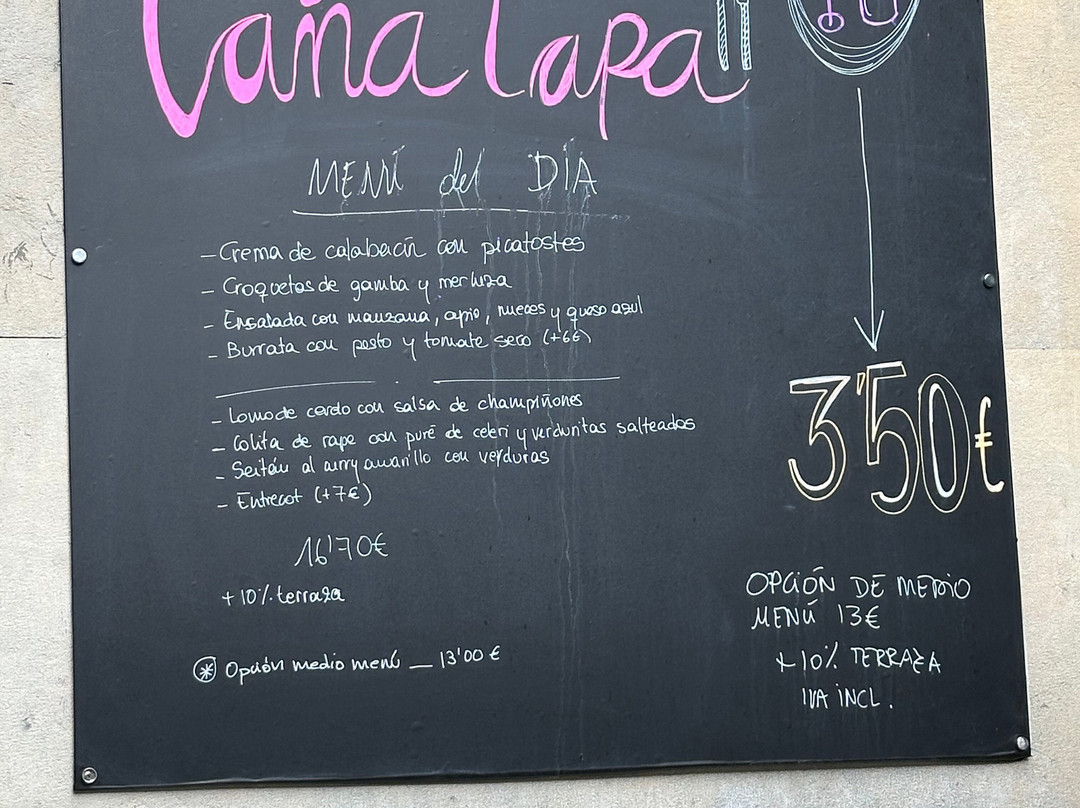 Caña Tapa
MENÚ del DÍA
- Crema de calabacín con picatostes
- Croquetas de gamba y merluza
- Ensalada con manzana, apio, nueces y queso azul
- Burrata con pesto y tomate seco (+6€)
- Lomo de cerdo con salsa de champiñones
- Colita de rape con puré de celeri y verduritas salteadas
- Seitán al curry amarillo con verduras
- Entrecot (+7€)
16'70€
+10% terraza
* Opción medio menú — 13'00 €
3'50€
OPCIÓN DE MEDIO
MENÚ 13€
+10% TERRAZA
IVA INCL.